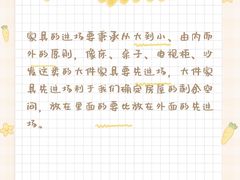 家具的进场要秉承从大到小、由内而
外的原则，像床、桌子、电视柜、沙
发这类的大件家具要先进场，大件家
具先进场利于我们确定房屋的剩余空
间，放在里面的要比放在外面的先进
场。